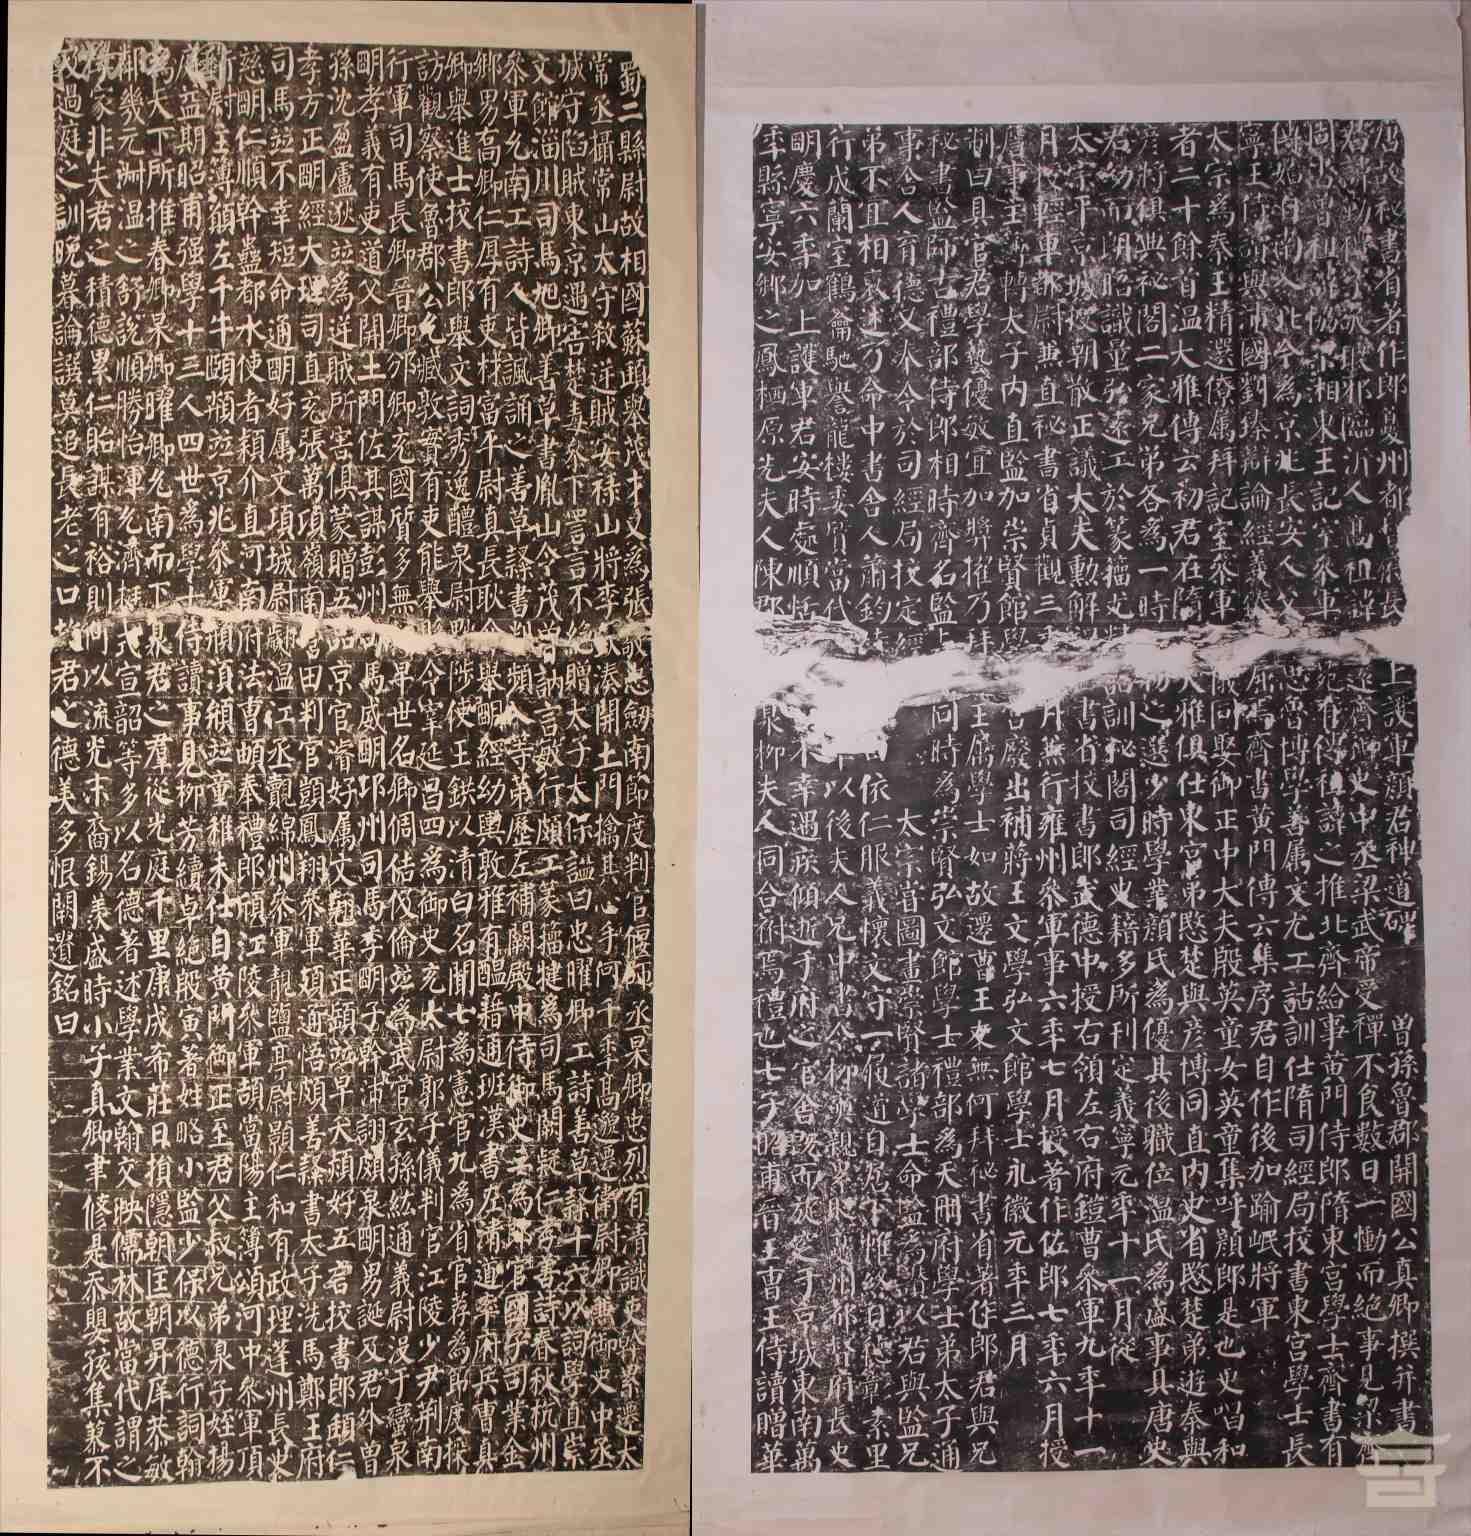 唐故祕書省著作郎夔州都督府長上護軍顏君神道碑 曾孫魯郡開國公真卿撰并書
君諱勤禮字敬琅邪臨沂人高祖諱遠齊御史中丞梁武帝受禪不食數日一慟而絕事見梁齊
周書曾祖諱協梁湘東王記室參軍苑有傳祖諱之推北齊給事黃門侍郎隋東宮學士齊書有
傳始自南入北今為京兆長安人父思魯博學善屬文尤工詁訓仕隋司經局校書東宮學士長
寧王侍讀與沛國劉臻辯論經義臻屈焉齊書黃門傳云集序君自作後加踰岷將軍
太宗為秦王精選僚属拜記室參軍儀同娶御正中大夫殷英童女英童集呼顏郎是也更唱和
者二十餘首溫大雅傳云初君在隋大雅俱仕東宮弟愍楚與彥博同直內史省愍楚弟遊秦與
彥將俱典祕閣二家兄弟各為一時物之選少時學業顏氏為優其後職位溫氏為盛事具唐史
君幼而朗晤識量弘遠工於篆籀尤精詁訓祕閣司經史籍多所刊定義寧元年十一月從
太宗平京城授朝散正議大夫勳解書省校書郎武德中授右領左右府鎧曹參軍九年十一
月授輕車都尉兼直祕書省貞觀三年月兼行雍州參軍事六年七月授著作佐郎七年六月授
詹事主簿轉太子內直監加崇賢館學宮廢出補蔣王文學弘文館學士永徽元年三月
制曰具官君學藝優敏宜加獎擢乃拜王屬學士如故遷曹王友無何拜祕書省著作郎君與兄
祕書監師古禮部侍郎相時齊名監與同時為崇賢弘文館學士禮部為天冊府學士弟太子通
事舍人育德又奉令於司經局校定經 太宗嘗圖畫崇賢諸學士命監為讚以君與監兄
弟不宜相褒述乃命中書舍人蕭鈞曰依仁服義懷文守一履道自居下帷終日德彰素里
行成蘭室鶴籥馳譽龍樓委質當代年以後夫人兄中書令柳奭親累貶夔州都督府長史
明慶六年加上護軍君安時處順恬不幸遇疾傾逝于府之官舍既而旋窆于京城東南萬
年縣寧安鄉之鳳栖原先夫人陳郡臮柳夫人同合祔焉禮也七子昭甫晉王曹王侍讀贈華
蜀二縣尉故相國蘇頲舉茂才又為張敬忠劍南節度判官偃師丞杲卿忠烈有清識吏幹累遷太
常丞攝常山太守殺逆賊安祿山將李欽湊開土門擒其心手何千年高邈遷衛尉卿兼御史中丞
城守陷賊東京遇害楚毒參下詈言不絕贈太子太保謚曰忠曜卿工詩善草隸十六以詞學直崇
文館淄川司馬旭卿善草書胤山令茂曾訥言敏行頗工篆籀犍為司馬闕疑仁孝善詩春秋杭州
參軍允南工詩人皆諷誦之善草隸書判頻入等第歷左補闕殿中侍御史三為郎官國子司業金
鄉男喬卿仁厚有吏材富平尉真長耿介舉明經幼輿敦雅有醞藉通班漢書左清道率府兵曹真
卿舉進士校書郎舉文詞秀逸醴泉尉黜陟使王鉷以清白名聞七為憲官九為省官薦為節度採
訪觀察使魯郡公允臧敦實有吏能舉縣令宰延昌四為御史充太尉郭子儀判官江陵少尹荊南
行軍司馬長卿晉卿邠卿充國質多無祿早世名卿倜佶伋倫並為武官玄孫紘通義尉沒于蠻泉
明孝義有吏道父開土門佐其謀彭州司馬威明邛州司馬季明子幹沛詡頗泉明男誕及君外曾
孫沈盈盧逖並為逆賊所害俱蒙贈五品京官濬好属文翹華正頤並早夭頻好五言校書郎頲仁
孝方正明經大理司直充張萬頃嶺南營田判官顗鳳翔參軍頗通悟頗善隸書太子洗馬鄭王府
司馬並不幸短命通明好属文項城尉翽溫江丞覿綿州參軍靚鹽亭尉顥仁和有政理蓬州長史
慈明仁順幹蠱都水使者穎介直河南府法曹頔奉禮郎頎江陵參軍頡當陽主簿頌河中參軍頂
衛尉主簿願左千牛頤頹並京兆參軍須頍並童稚未仕自黃門御正至君父叔兄弟臮子姪揚
庭益期昭甫強學十三人四世為學士侍讀事見柳芳續卓絕殷寅著姓略小監少保以德行詞翰
為天下所推春卿杲卿曜卿允南而下臮君之羣從光庭千里康成希莊日損隱朝匡朝昇庠恭敏
鄰幾元淑溫之舒說順勝怡渾允濟挺式宣韶等多以名德著述學業文翰交映儒林故當代謂之
學家非夫君之積德累仁貽謀有裕則何以流光末裔錫羨盛時小子真卿聿修是忝嬰孩集蓼不
及過庭之訓晚暮論譔莫追長老之口故君之德美多恨闕遺銘曰